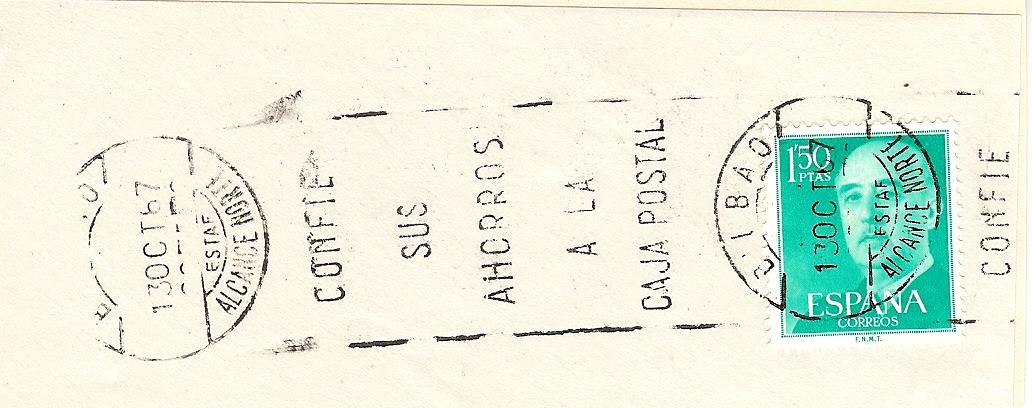 13 OCT 67
ESTAF
ALCANCE NORTE
CONFIE
SUS
AHORROS
A LA
CAJA POSTAL
BILBAO
13 OCT 67
ESTAF
ALCANCE NORTE
1'50
PTAS
ESPAÑA
CORREOS
F.N.M.T.
CONFIE